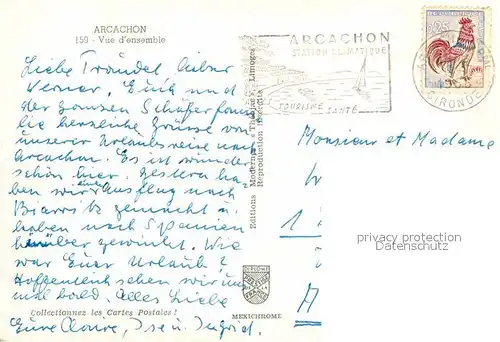 ARCACHON
159 - Vue d'ensemble
Liebe Traudel, lieber
Werner, Euch und
der ganzen Schäferfami
lie herzliche Grüsse von
unserer Urlaubsreise nach
Arcachon. Es ist wunder
schön hier. Gestern ha
ben wir einen Ausflug nach
Biarritz gemacht u.
haben nach Spanien
hinüber gewinkt. Wie
war Euer Urlaub?
Hoffentlich sehen wir uns
mal bald. Alles Liebe
Eure Claire, Ilse u. Ingrid.
Collectionnez les Cartes Postales !
Editions Modernes "Théojac", Limoges
Reproduction interdite
MEXICHROME
ARCACHON
STATION CLIMATIQUE
TOURISME SANTÉ
0,25
GIRONDE
Monsieur et Madame
W
1
A
privacy protection
Datenschutz